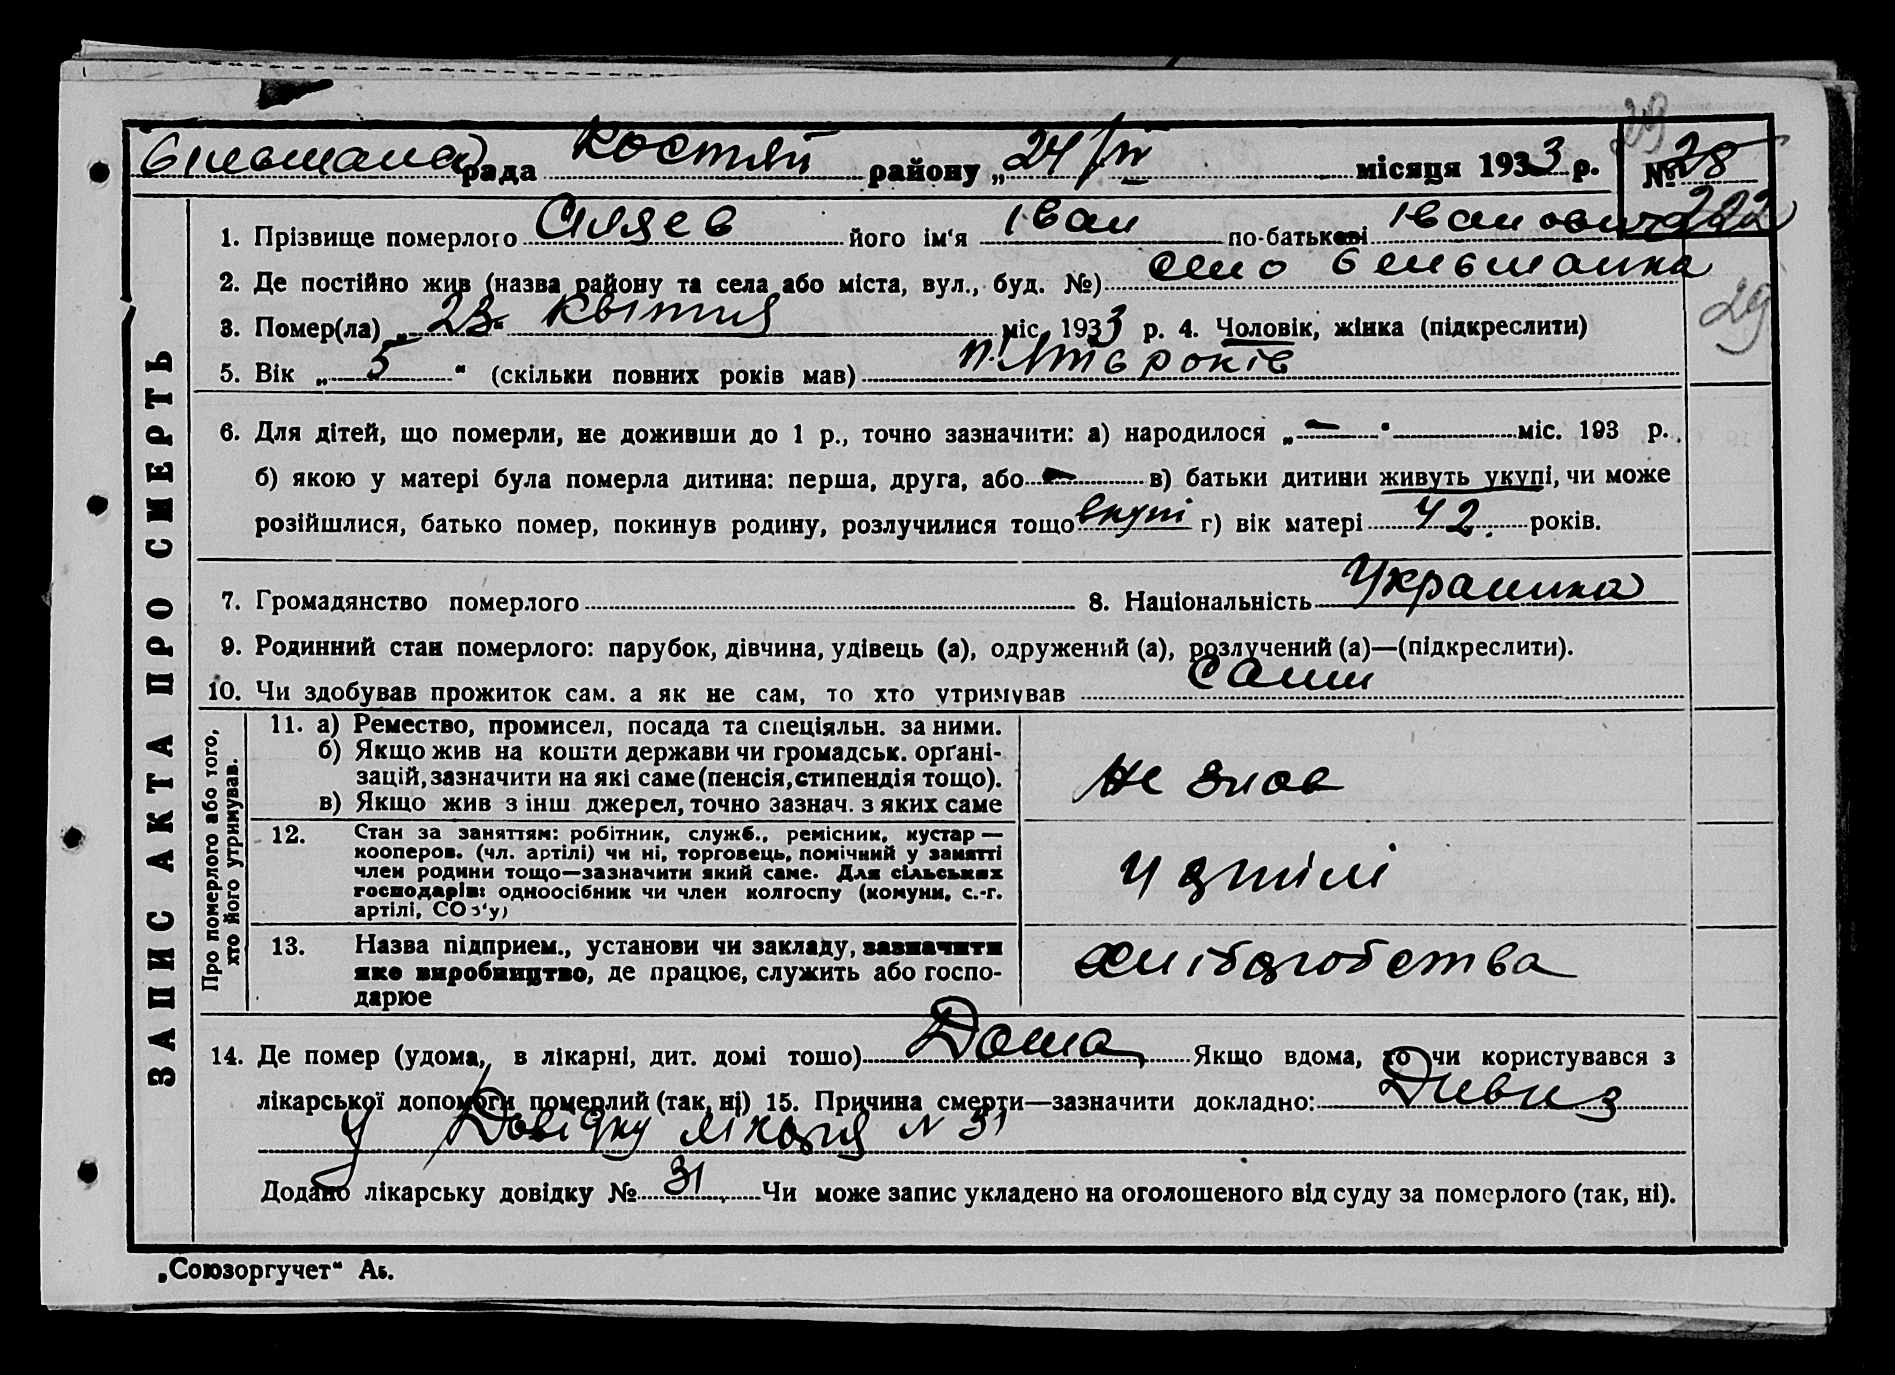 рада Костян району „ 24/IV місяця 1933 р. № 28
222
29
1. Прізвище померлого Сіляєв його ім‘я Іван по-батькові Іванович
2. Де постійно жив (назва району та села або міста, вул., буд. №) село Вільшанка
29
3. Помер(ла) „ 23 “ квітня міс. 1933 р. 4. Чоловік, жінка (підкреслити)
5. Вік „ 5 “ (скільки повних років мав) п‘ять років
6. Для дітей, що померли, не доживши до 1 р., точно зазначити: а) народилося „ — “ міс. 193 р.
б) якою у матері була померла дитина: перша, друга, або — в) батьки дитини живуть укупі, чи може
розійшлися, батько помер, покинув родину, розлучилися тощо вкупі г) вік матері 42 років.
7. Громадянство померлого 8. Національність Українка
9. Родинний стан померлого: парубок, дівчина, удівець (а), одружений (а), розлучений (а)—(підкреслити).
10. Чи здобував прожиток сам. а як не сам, то хто утримував
ЗАПИС АКТА ПРО СМЕРТЬ
Про померлого або того,
хто його утримував.
11. а) Ремество, промисел, посада та спеціяльн. за ними.
б) Якщо жив на кошти держави чи громадськ. орґані-
зацій, зазначити на які саме (пенсія, стипендія тощо).
в) Якщо жив з інш джерел, точно зазнач. з яких саме
не
12. Стан за заняттям: робітник, служб., ремісник, кустар —
кооперов. (чл. артілі) чи ні, торговець, помічний у занятті
член родини тощо—зазначити який саме. Для сільських
господарів: одноосібник чи член колгоспу (комуни, с.-г.
артілі, СОЗ‘у)
У артілі
13. Назва підприєм., установи чи закладу, зазначити
яке виробництво, де працює, служить або госпо-
дарює
хліборобства
14. Де помер (удома, в лікарні, дит. домі тощо) Дома Якщо вдома, то чи користувався з
лікарської допомоги померлий (так, ні) 15. Причина смерти—зазначити докладно:
Довідку лікаря № 31
Додано лікарську довідку № 31 Чи може запис укладено на оголошеного від суду за померлого (так, ні).
„Союзоргучет“ Аб.